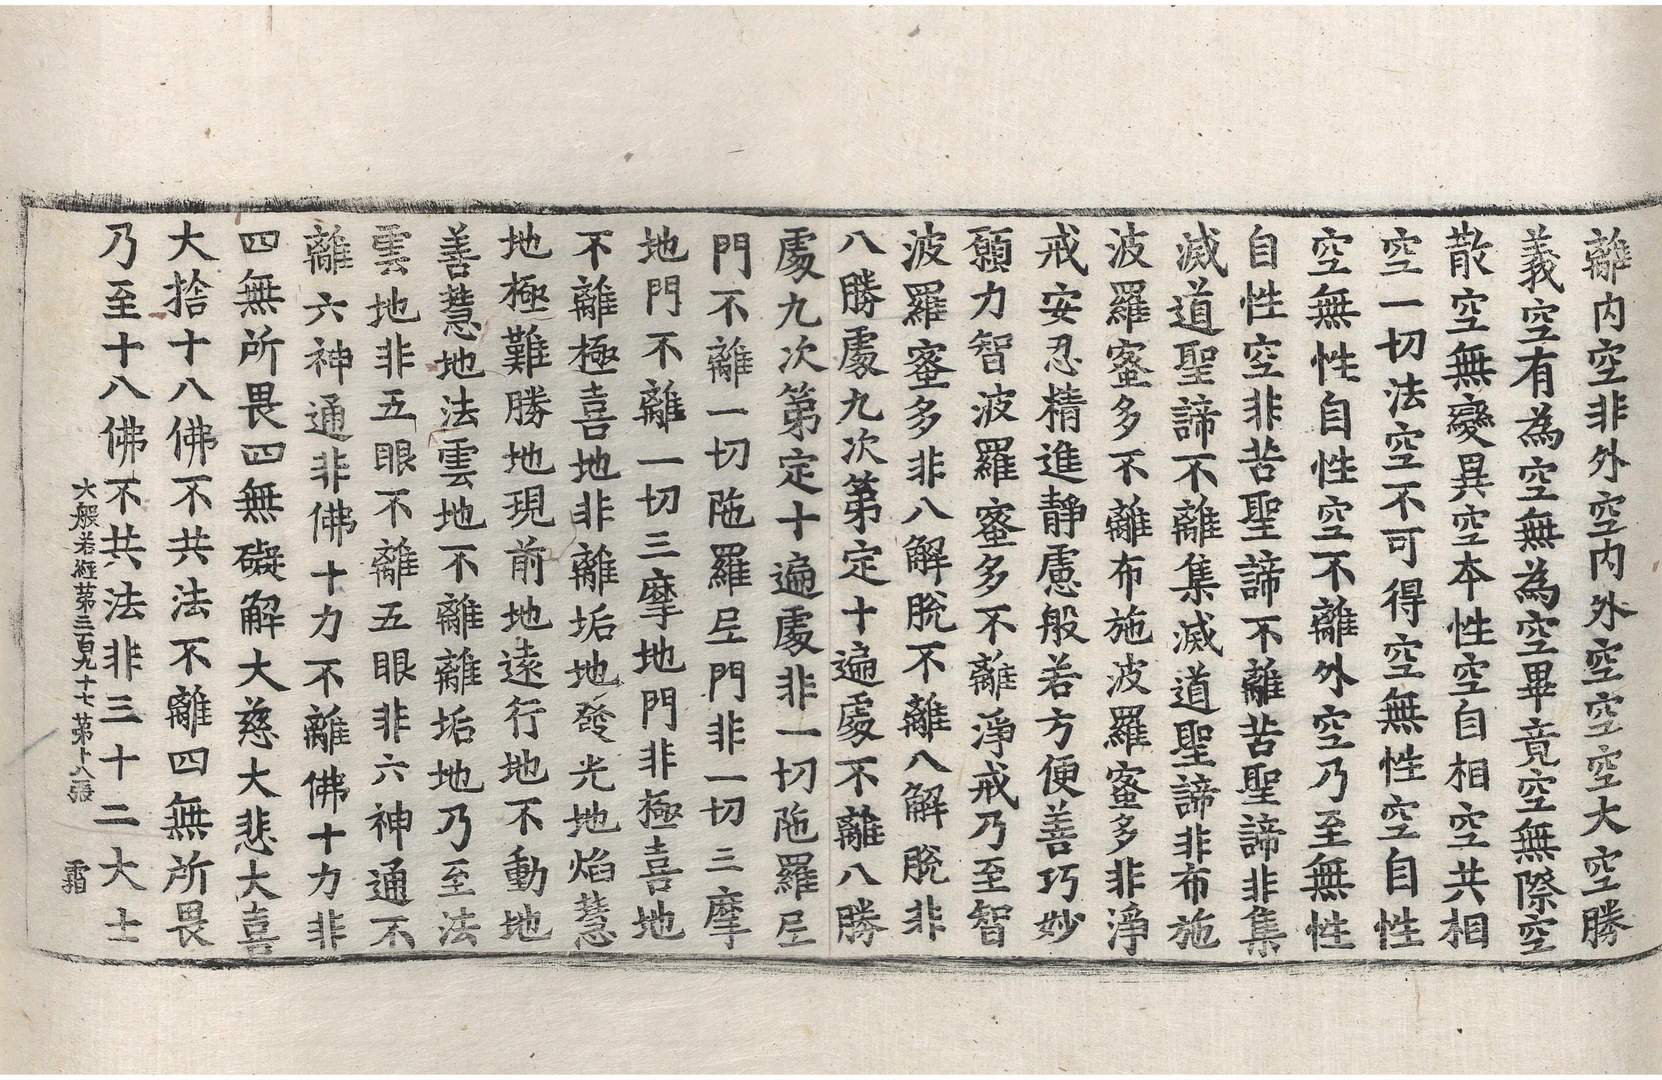 離内空非外空内外空空空大空勝
義空有為空無為空畢竟空無際空
散空無變異空本性空自相空共相
空一切法空不可得空無性空自性
空無性自性空不離外空乃至無性
自性空非苦聖諦不離苦聖諦非集
滅道聖諦不離集滅道聖諦非布施
波羅蜜多不離布施波羅蜜多非淨
戒安忍精進靜慮般若方便善巧妙
願力智波羅蜜多不離淨戒乃至智
波羅蜜多非八解脫不離八解脫非
八勝處九次第定十遍處不離八勝
處九次第定十遍處非一切陁羅尼
門不離一切陁羅尼門非一切三摩
地門不離一切三摩地門非極喜地
不離極喜地非離垢地發光地焰慧
地極難勝地現前地遠行地不動地
善慧地法雲地不離離垢地乃至法
雲地非五眼不離五眼非六神通不
離六神通非佛十力不離佛十力非
四無所畏四無礙解大慈大悲大喜
大捨十八佛不共法不離四無所畏
乃至十八佛不共法非三十二大士
大般若經第三百九十七 第十八張 霜